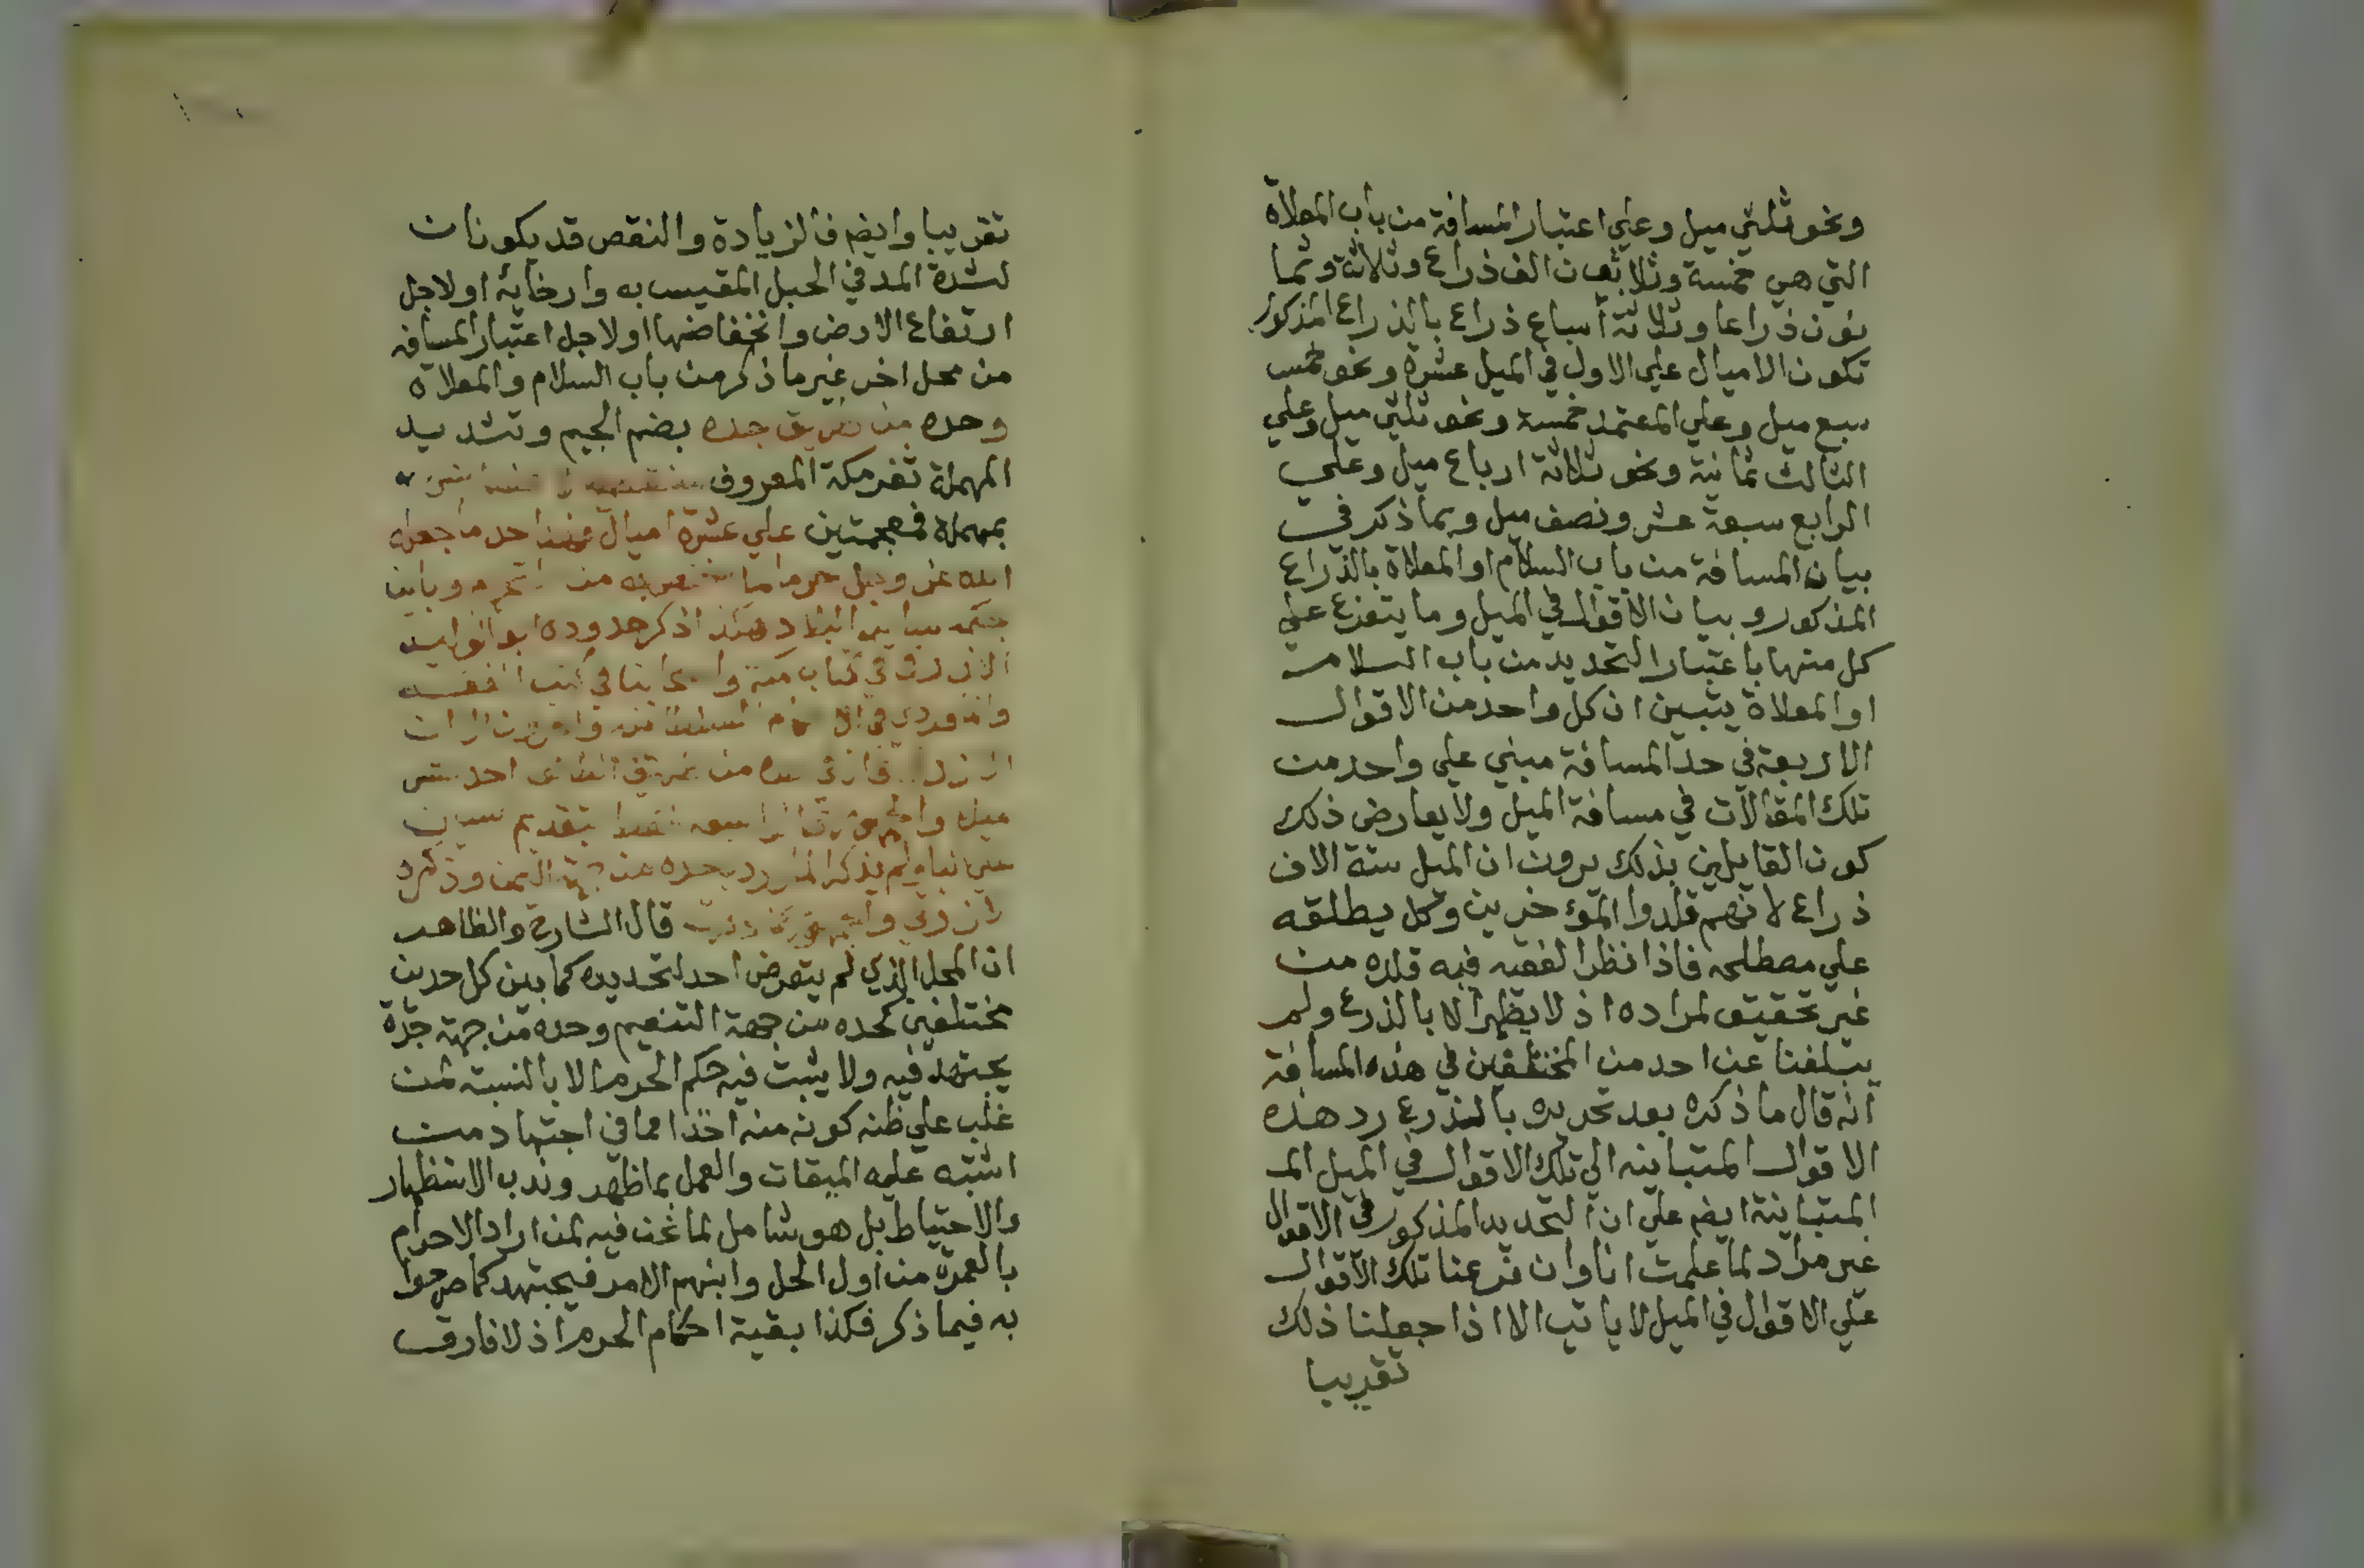 ونحو ثلثي ميل وعلي اعتبار المسافة من باب المعلاة
التي هي خمسة وثلاثون الف ذراع وثلاثة وثما
نون ذراعا وثلاثة أسباع ذراع بالذراع المذكور
تكون الاميال علي الاول في الميل عشرة ونحو خمس
سبع ميل وعلي المعتمد خمسة ونحو ثلثي ميل وعلي
الثالث ثمانية ونحو ثلاثة ارباع ميل وعلي
الرابع سبعة عشر ونصف ميل وبما ذكر في
بيان المسافة من باب السلام او المعلاة بالذراع
المذكور وبيان الاقوال في الميل وما يتفرع علي
كل منها باعتبار التحديد من باب السلام
او المعلاة يتبين ان كل واحد من الاقوال
الاربعة في حد المسافة مبني علي واحد من
تلك المقالات في مسافة الميل ولا يعارض ذلك
كون القايلين بذلك يرون ان الميل ستة الاف
ذراع لانهم قلدوا المؤخرين وكل يطلقه
علي مصطلحه فاذا نظر الفقيه فيه قلده من
غير تحقيق لمراده اذ لا يظهر الا بالذرع ولم
يبلغنا عن احد من المختلفين في هذه المسافة
انه قال ما ذكره بعد تحريره بالذرع رد هذه
الاقوال المتباينه الي تلك الاقوال في الميل الم
المتباينة ايضم علي ان التحديد المذكور في الاقوال
غير مراد لما علمت انا وان فرعنا تلك الاقوال
علي الاقوال في الميل لا ياتي الا اذا جعلنا ذلك
تقريبا
تقريبا وايضم فالزيادة والنقص قد يكونان
لشدة المد في الحبل المقيس به وارخايه او لاجل
ارتفاع الارض وانخفاضها او لاجل اعتبار المسافه
من محل اخر غير ما ذكر من باب السلام والمعلاة
وحده من طريق جده بضم الجيم وتشديد
المهملة ثغر مكة المعروف
بمهملة فمعجمتين علي عشرة اميال فهذا حد ما جعله
الله عز وجل حرما لما من التحريم وباين
بحكمه ساير البلاد هكذا ذكر حدوده ابو الوليد
الازرقي في كتاب مكة واصحابنا في كتب الفقه
والماوردي في الاحكام السلطانيه
من طريق الطايف احد عشر
ميلا بتقديم
ولم يذكر الماوردي حده من جهة اليمن وذكره
الازرقي والجمهور قال الشارح والظاهر
ان المحل الذي لم يتعرض احد لتحديده كما بين كل حدين
مختلفين كحده من جهة التنعيم وحده من جهة جدة
يجتهد فيه ولا يثبت فيه حكم الحرم الا بالنسبة لمن
غلب علي ظنه كونه منه اخذا مما في اجتهاد من
اشتبه عليه الميقات والعمل بما ظهر وندب الاستظهار
والاحتياط بل هو شامل لما نحن فيه لمن اراد الاحرام
بالعمرة من اول الحل وابنهم الامر فيجتهد كما صرحوا
به فيما ذكر فكذا بقية احكام الحرم اذ لا فارق